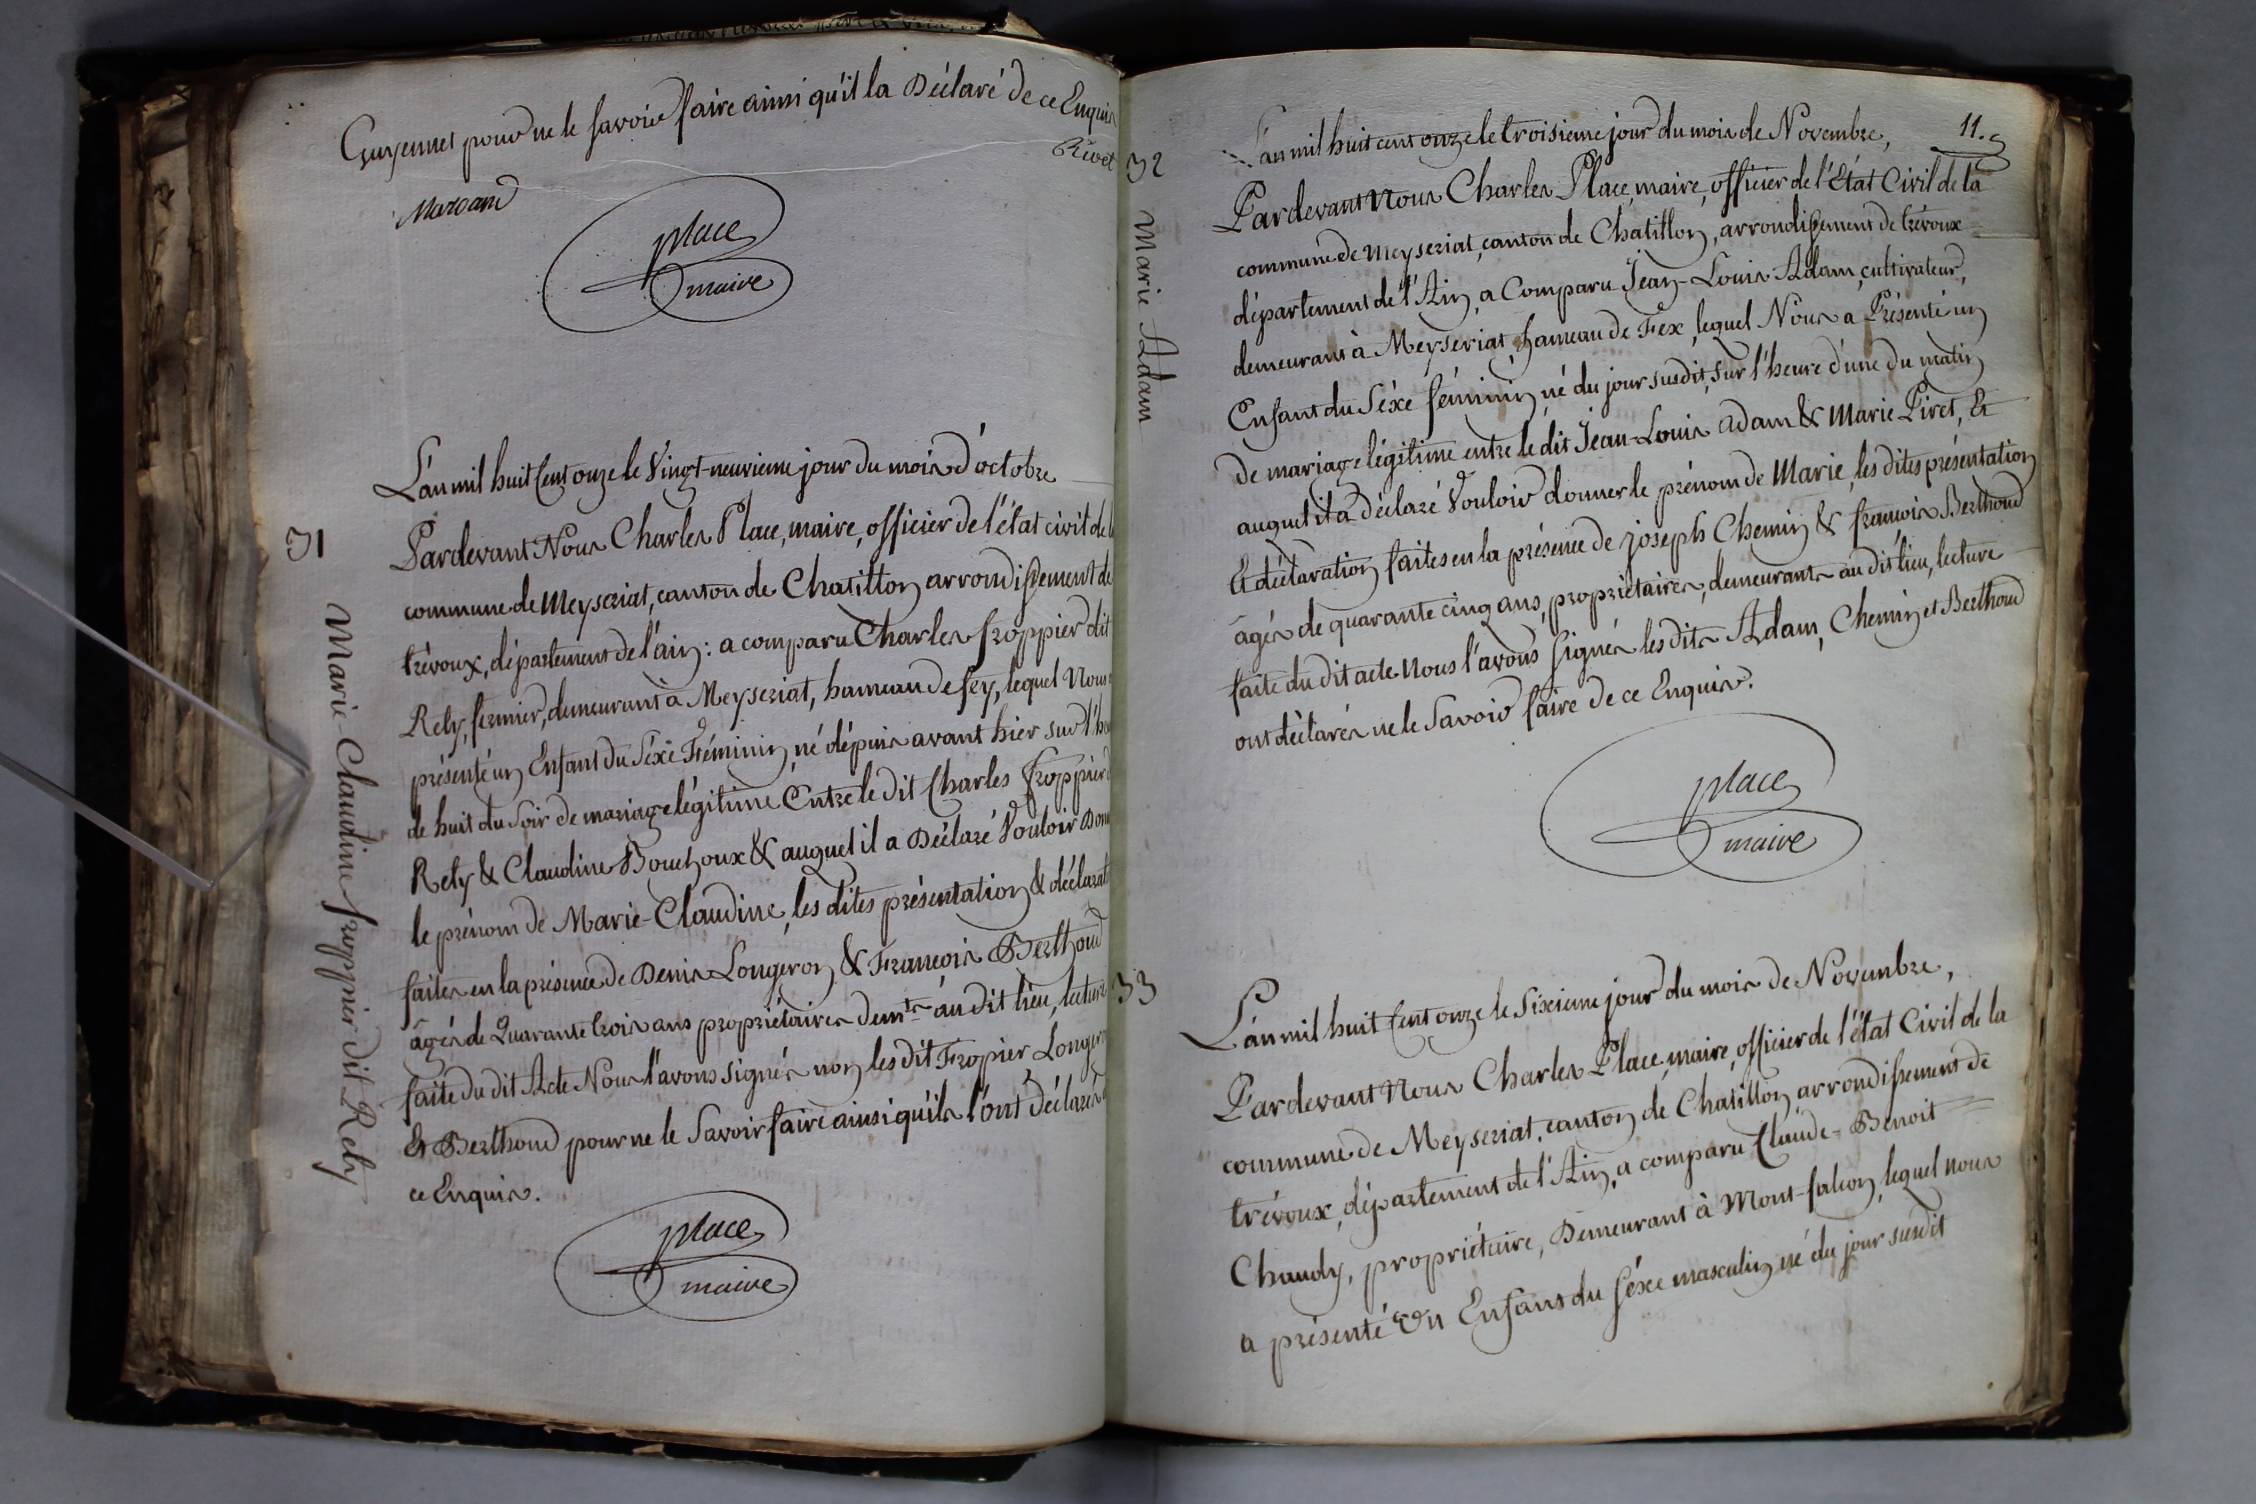 Guyennet pour ne le savoir faire ainsi qu'il la Déclaré de ce Enquis
Rivet
Marvand
place
maire
31
Marie-Claudine froppier dit Rely
L'an mil huit Cent onze le Vingt-neuvieme jour du mois d'octobre
Pardevant Nous Charles Place, maire, officier de l'état civil de l
commune de Meyseriat, canton de Chatillon arrondissement de
trévoux, département de l'ain : a comparu Charles froppier dit
Rely, fermier, demeurant à Meyseriat, hameau de fey, lequel Nous
présenté un Enfant du Séxe Féminin, né dépuis avant hier sur l'h
de huit du Soir de mariage légitime Entre le dit Charles froppier
Rely & Claudine Bouchoux & auquel il a Déclaré Vouloir Don
le prénom de Marie-Claudine, les dites présentation & déclarat
faites en la présence de Denis Longeron & Francois Berthoud
âgés de Quarante trois ans propriétaires demts au dit lieu, lecture
faite du dit Acte Nous l'avons signés non les dit Fropier, Longer
& Berthoud pour ne le Savoir faire ainsi qu'ils l'ont déclarés
ce Enquis.
place
maire
11.
32
Marie Adam
L'an mil huit cent onze le troisieme jour du mois de Novembre,
Pardevant Nous Charles Place, maire, officier de l'Etat Civil de la
commune de Meyseriat, canton de Chatillon, arrondissement de trévoux
département de l'Ain, a Comparu Jean-Louis Adam, cultivateur,
demeurant à Meyseriat, hameau de Fex, lequel Nous a Présenté un
Enfant du Séxe féminin, né du jour susdit, sur l'heure d'une du matin
de mariage légitime entre le dit Jean-Louis Adam & Marie Piret, Et
auquel il a déclaré Vouloir donner le prénom de Marie, les dites présentation
Et déclaration faites en la présence de joseph Chemin & francois Berthoud
âgés de quarante cinq ans, propriétaires, demeurants au dit lieu, lecture
faite du dit acte Nous l'avons Signés les dits Adam, Chemin et Berthoud
ont déclarés ne le Savoir faire de ce Enquis.
place
maire
33
L'an mil huit Cent onze le Sixieme jour du mois de Novembre,
Pardevant Nous Charles Place, maire, officier de l'état Civil de la
commune de Meyseriat, canton de Chatillon arrondissement de
trévoux, département de l'Ain, a comparu Claude-Benoit
Chaudy, propriétaire, Demeurant à Mont-falcon, lequel nous
a présenté Un Enfant du Séxe masculin né du jour susdit